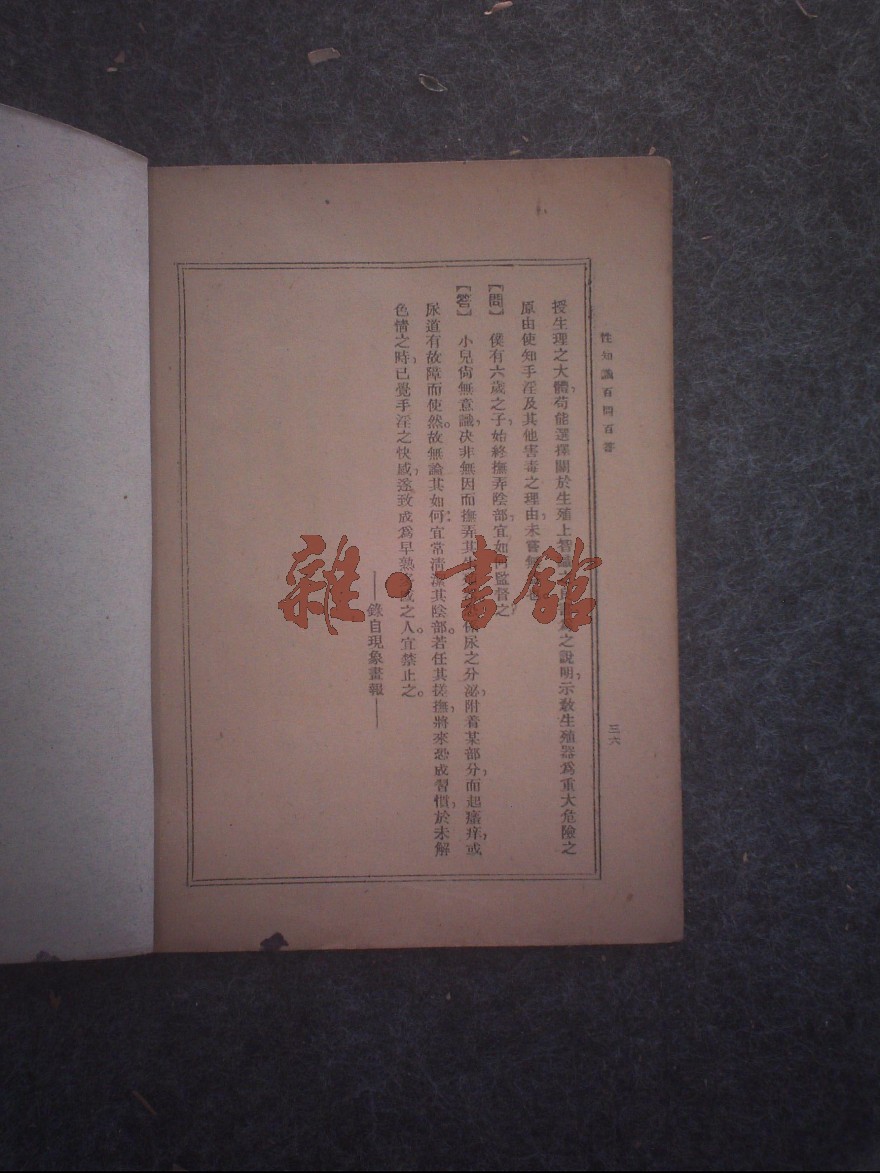 性知識百問百答
三六
授生理之大體,苟能選擇關於生殖上智識之 之說明,示敎生殖器爲重大危險之
原由使知手淫及其他害毒之理由,未嘗無
【問】 僕有六歲之子,始終撫弄陰部,宜如何監督之
【答】 小兒尙無意識,决非無因而撫弄其生 尿之分泌,附着某部分而起癢痒,或
尿道有故障而使然。故無論其如何宜常淸潔其陰部。若任其搓撫,將來恐成習慣,於未解
色情之時,已覺手淫之快感,遂致成爲早熟 之人。宜禁止之。
——錄自現象畫報——
雜·書館